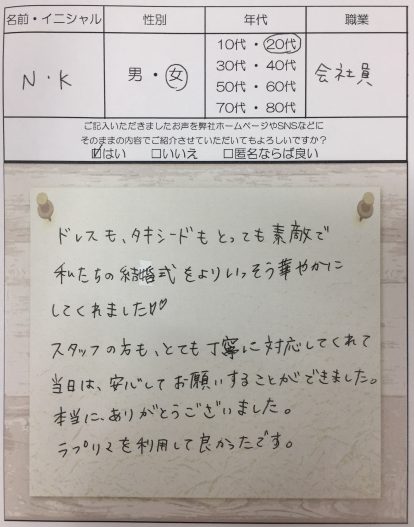 名前・イニシャル 性別 年代 職業
N・K 男・女 10代・20代 会社員
30代・40代
50代・60代
70代・80代
ご記入いただきましたお声を弊社ホームページやSNSなどに
そのままの内容でご紹介させていただいてもよろしいですか?
☑はい □いいえ □匿名ならば良い
ドレスも、タキシードもとっても素敵で
私たちの結婚式をよりいっそう華やかに
してくれました♡♡
スタッフの方も、とても丁寧に対応してくれて
当日は、安心してお願いすることができました。
本当に、ありがとうございました。
ラプリマを利用して良かったです。